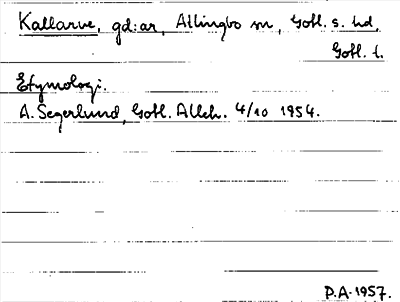 Kallarve, gd:ar, Allingbo sn, Gotl. s. hd,
Gotl. l.
Etymologi.
A. Segerlund, Gotl. Alleh. 4/10 1954.
P.A. 1957.